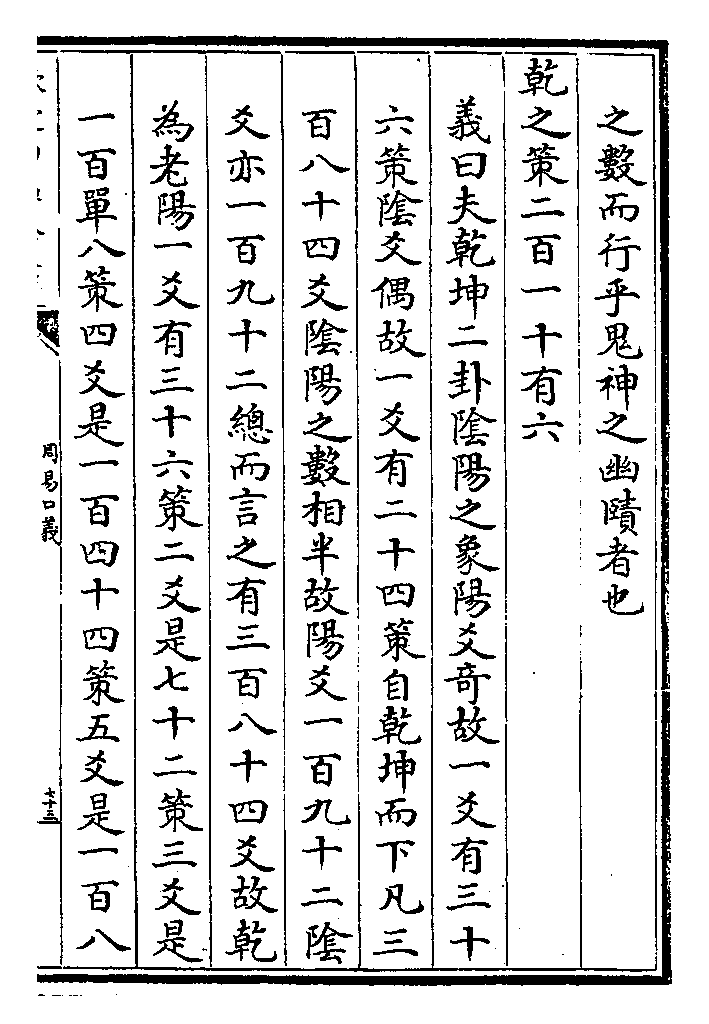 之數而行乎鬼神之幽賾者也
乾之策二百一十有六
義曰夫乾坤二卦陰陽之象陽爻竒故一爻有三十
六策陰爻偶故一爻有二十四策自乾坤而下凡三
百八十四爻陰陽之數相半故陽爻一百九十二陰
爻亦一百九十二總而言之有三百八十四爻故乾
為老陽一爻有三十六策二爻是七十二策三爻是
一百單八策四爻是一百四十四策五爻是一百八
周易口義
七十三